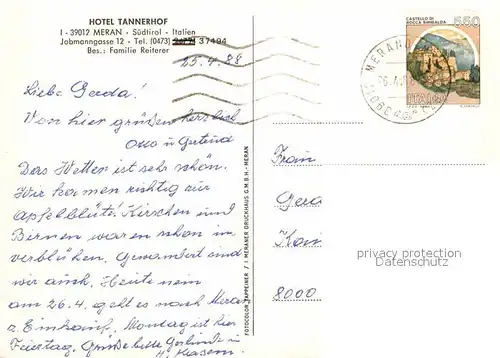 HOTEL TANNERHOF
I - 39012 MERAN - Südtirol - Italien
Jobmanngasse 12 - Tel. (0473) 37494
Bes.: Familie Reiterer
25.4.88
CASTELLO DI
ROCCA SINIBALDA
550
ITALIA
MERANO
Liebe Gerda!
Von hier grüßen herzlich
Otto u Gertrud
Das Wetter ist sehr schön.
Wir kamen richtig zur
Apfelblüte! Kirschen und
Birnen waren schon im
verblühen. Gewandert sind
wir auch. Heute nein
am 26.4. geht es nach Meran
z Einkauf. Montag ist hier
Feiertag. Grüße bitte
FOTOCOLOR TAPPEINER / MERANER DRUCKHAUS G.M.B.H.-MERAN
Frau
8000
privacy protection
Datenschutz